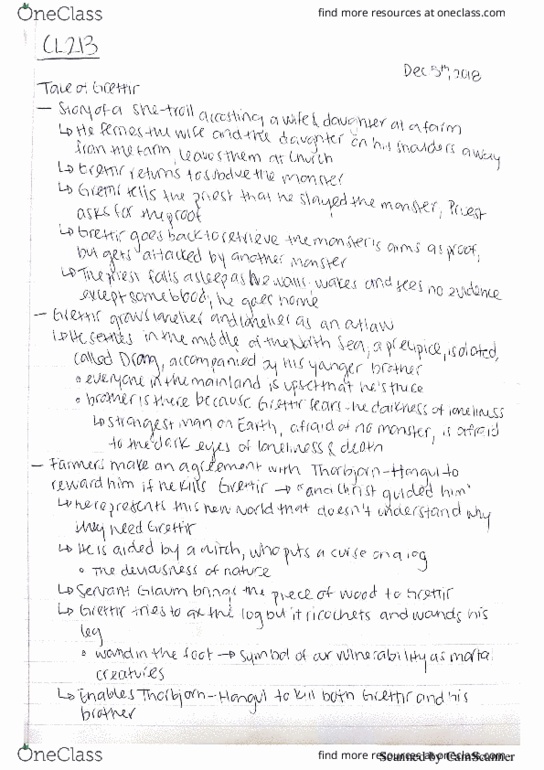 OneClass
find more resources at oneclass.com
CL213
Dec 5th, 2018
Tale of Grettir
— Story of a she-troll accosting a wife & daughter at a farm
↳ He ferries the wife and the daughter on his shoulders away
from the farm, leaves them at church
↳ Grettir returns to subdue the monster
↳ Grettir tells the priest that he slayed the monster, Priest
asks for the proof
↳ Grettir goes back to retrieve the monster's arms as proof,
but gets attacked by another monster
↳ The priest falls asleep as he waits, wakes and sees no evidence
except some blood, he goes home
— Grettir grows lonelier and lonelier as an outlaw
↳ He settles in the middle of the North Sea, a precipice, isolated,
called Drang, accompanied by his younger brother
° everyone in the mainland is upset that he's there
° brother is there because Grettir fears the darkness of loneliness
↳ strongest man on Earth, afraid of no monster, is afraid
to the dark eyes of loneliness & death
— Farmers make an agreement with Thorbjorn-Hongul to
reward him if he kills Grettir → "and Christ guided him"
↳ he represents this new world that doesn't understand why
they need Grettir
↳ He is aided by a witch, who puts a curse on a log
° The deviousness of nature
↳ Servant Glaum brings the piece of wood to Grettir
↳ Grettir tries to ax the log but it ricochets and wounds his
leg
° wound in the foot → symbol of our vulnerability as mortal
creatures
↳ Enables Thorbjorn-Hongul to kill both Grettir and his
brother
OneClass
find more resources at oneclass.com
Scanned by CamScanner